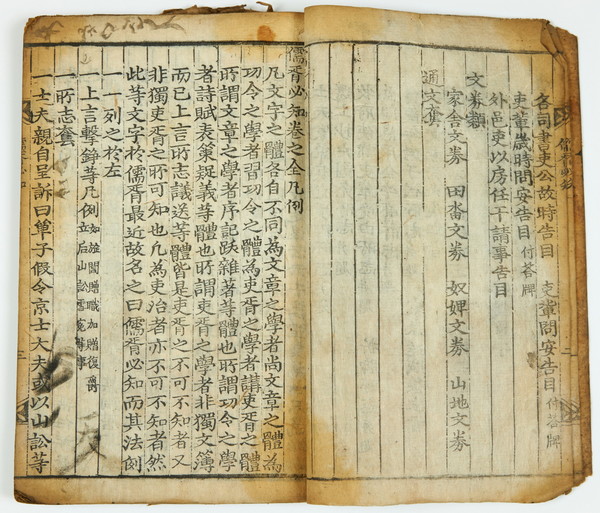 各司書吏公故時告目　吏輩問安告目 付答牌
吏輩歲時問安告目 付答牌
外邑吏以房任干請事告目
文券類
家舍文券　田畓文券　奴婢文券　山地文券
通文套
儒胥必知卷之全凡例
凡文字之體各自不同爲文章之學者尚文章之體爲
功令之學者習功令之體爲吏胥之學者講吏胥之體
所謂文章之學者序記跋雜著等體也所謂功令之學
者詩賦表策疑義等體也所謂吏胥之學者非獨文簿
而已上言所志議送等體皆是吏胥之不可不知者又
非獨吏胥之所可知也凡爲吏治者亦不可不知者然
此等文字於儒胥最近故名之曰儒胥必知而其法例
一一列之於左
一上言擊錚等凡例 如旌閭贈職加贈復爵
立后山訟等事
一所志套
一士夫親自呈訴曰單子假令京士大夫或以山訟等